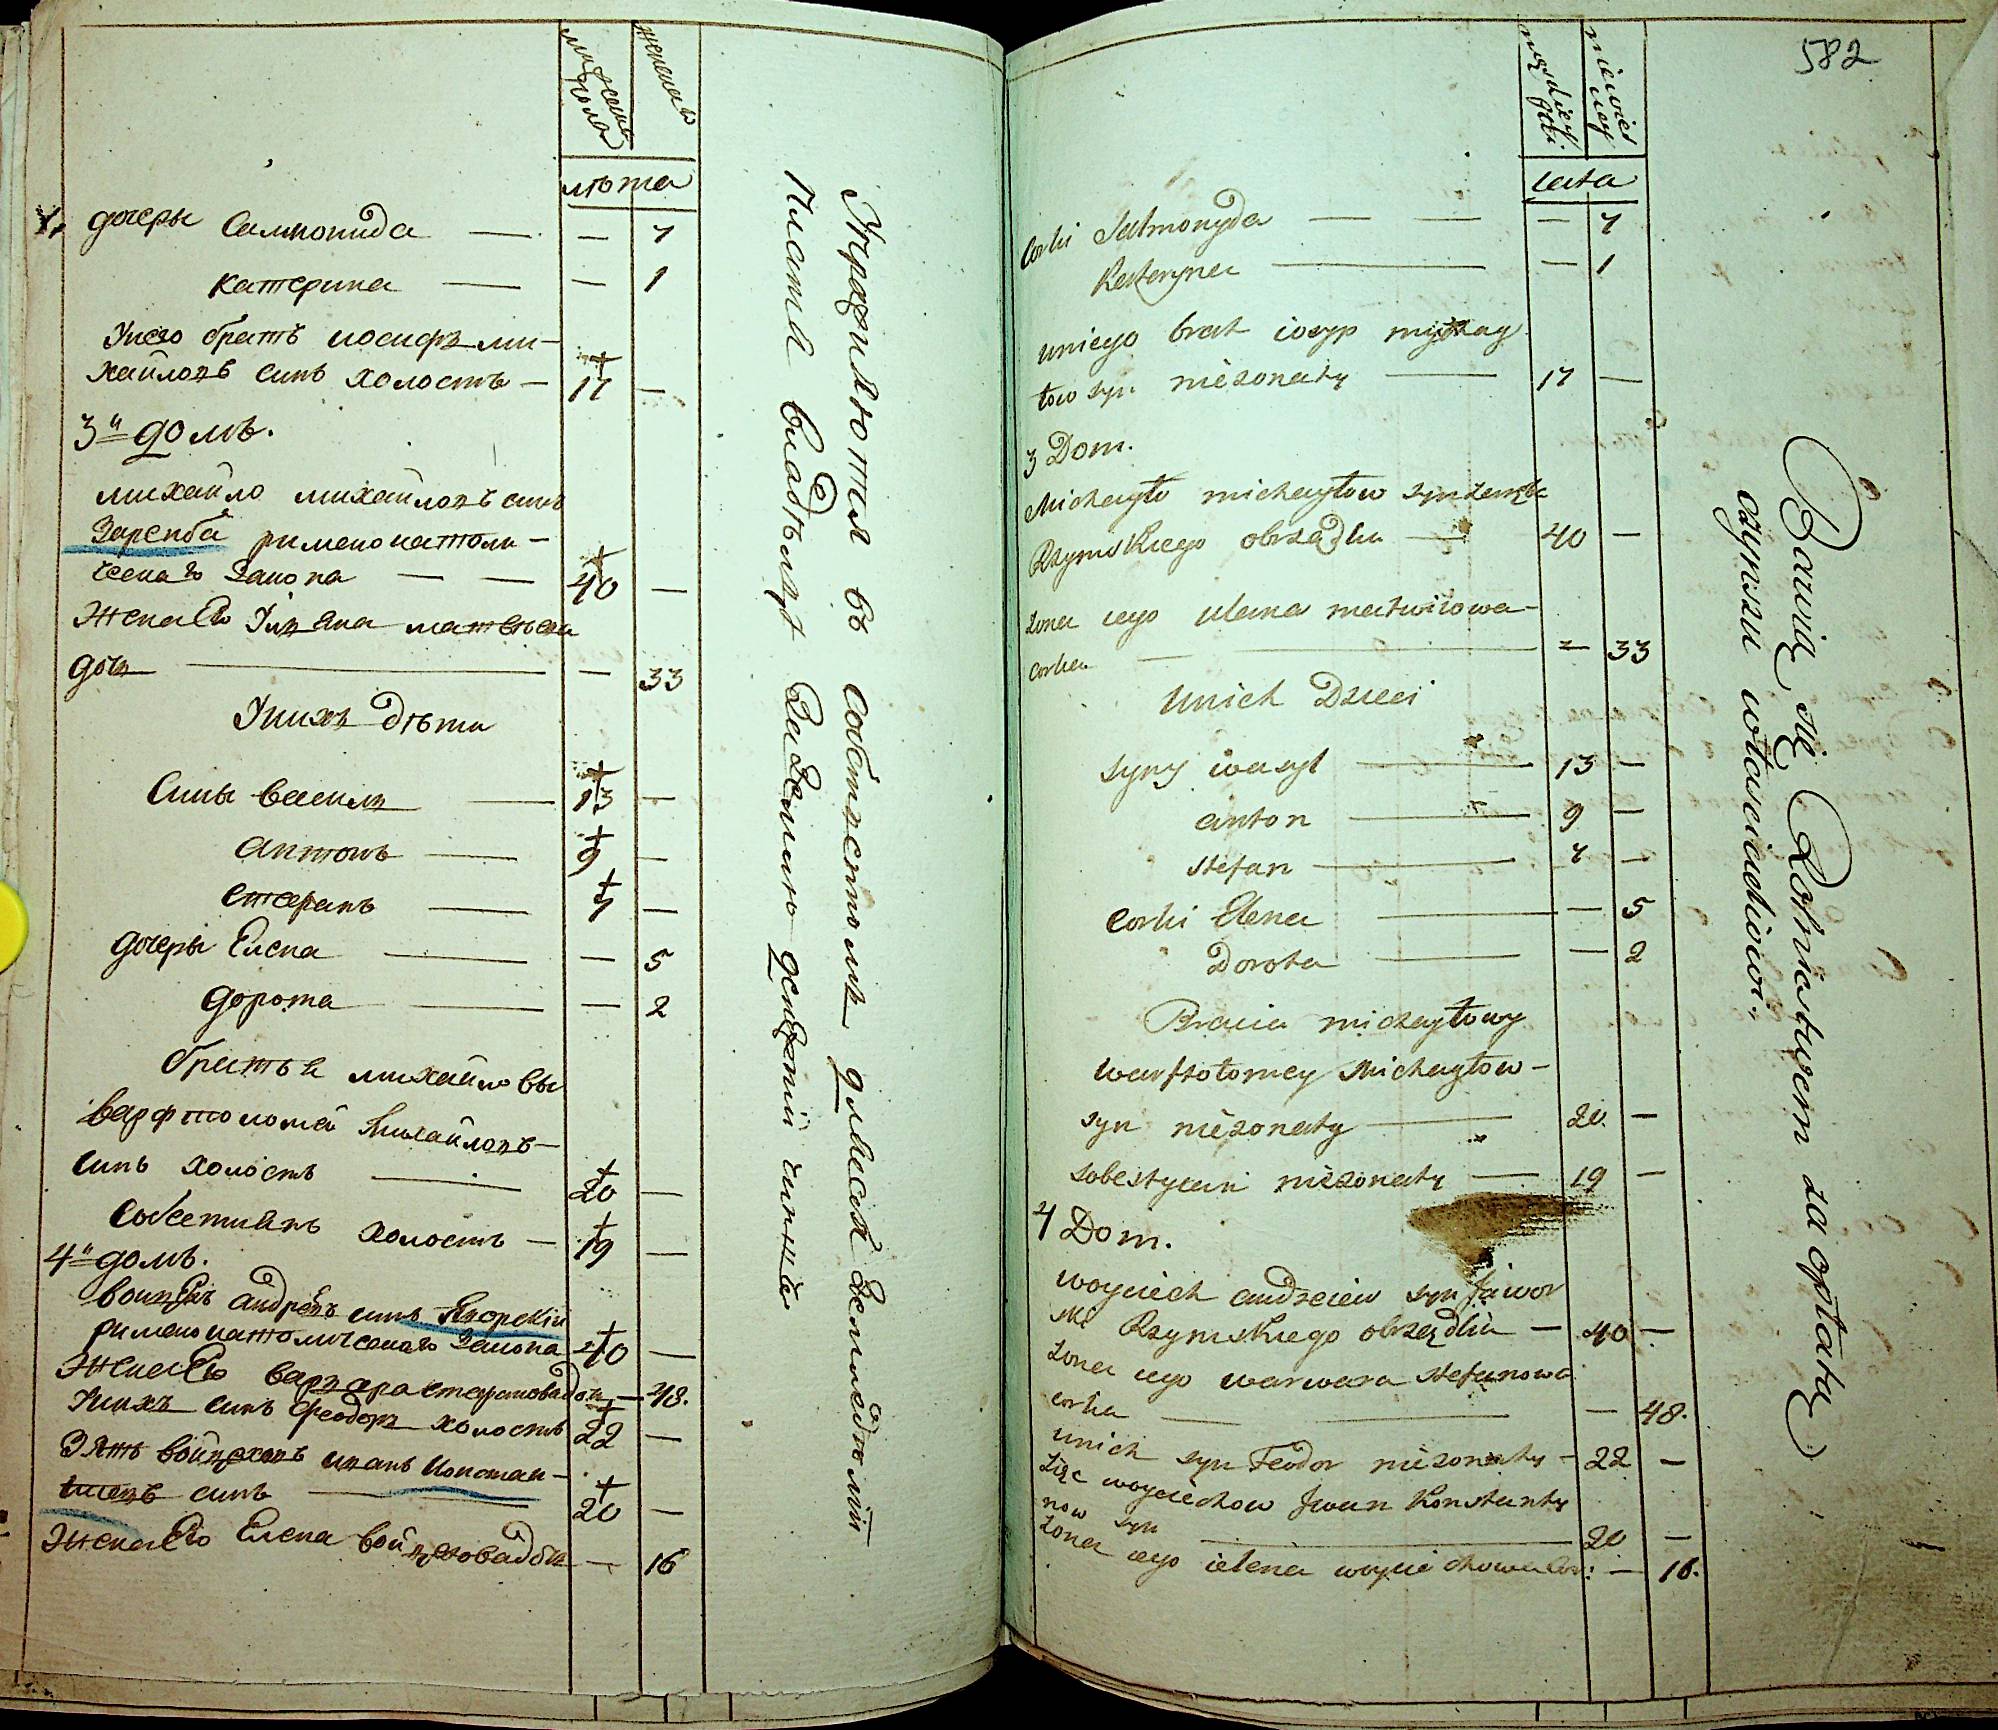 мужеска пола
женска
лѣта
дочеры Салмонида — — 7
Катерина — — 1
Унего братъ иосифъ ми-
хайловъ синъ холостъ — 17 —
3й домъ.
михайло михайловъ синъ
Заремба римскокатоли-
ческаго Закона — — 40 —
Жена Его Ульяна матвѣева
дочь — — 33
Унихъ дѣти
Сины василь — 13 —
антонъ — 9 —
Стефанъ — 7 —
дочеры Елена — — 5
дорота — — 2
братья михайловы
варфтоломей Михайловъ —
синъ холостъ — 20 —
Собестиянъ холостъ — 19 —
4й домъ.
войцехъ андреевъ синъ Яворскiй
римскокатолическаго Закона 40 —
Жена Его варвара стефанова дочь — 48.
Унихъ синъ феодоръ холостъ 22 —
Зять войцеховъ иванъ Констан-
тиновъ синъ — 20 —
Жена Его Елена войцехова дочь — 16
Упражняются въ собственномъ дѣлеса Земледѣлiи
Платя владѣльцу За Землю денежнiй чиншъ
582
męskiej płci
niewieściej
Lata
Corki Salmonyda — — — 7
Kateryna — — 1
uniego brat iosyp mychay
łow syn nieżonaty — 17 —
3 Dom.
Michayło michayłow syn zaręba
Rzymskiego obrządku — 40 —
żona iego ulana matwiiowa —
corka — — = 33
unich Dzieci
syny wasyl — 13 —
anton — 9 —
stefan — 7 —
Corki Elena — — 5
Dorota — — 2
Bracia michayłowy
warftołomey Michayłow —
syn nieżonaty — 20. —
sobestyian nieżonaty — 19 —
4 Dom.
woyciech andreiew syn Jawor
ski Rzymskiego obrządku — 40 —
żona iego warwara stefanowa
corka — — — 48.
unich syn Feodor nieżonaty — 22 —
Zięc woyciechow Jwan Konstanty
now syn — 20 —
żona iego ielena woyciechowa Cor: — 16.
Bawią się Rolnictwem za opłatą
czynszu włascicielowi.